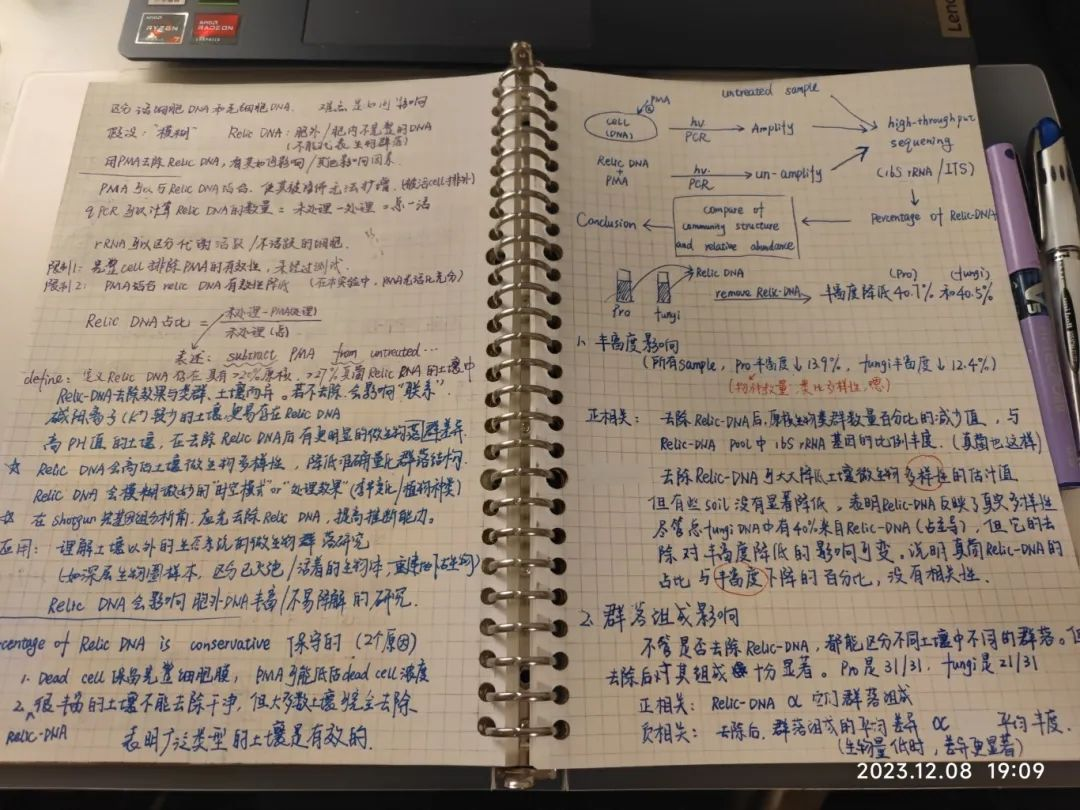 AMD
RYZEN
7
AMD
RADEON
GRAPHICS
Leno
区分活细胞DNA和无细胞DNA. 难点是的影响
假设："模糊" Relic DNA：胞外/胞内不完整的DNA
(不能代表生物群落)
用PMA去除Relic DNA, 有其如何影响/其他影响因素.
PMA可以与Relic DNA结合. 使其被修饰无法扩增. (被活cell排外)
qPCR可以计算Relic DNA的数量 = 未处理-处理 = 总-活
rRNA可以区分代谢活跃/不活跃的细胞.
限制1: 完整cell排除PMA的有效性, 未经过测试.
限制2: PMA结合relic DNA有效性降低 (在本实验中, PMA光活化充分)
Relic DNA占比 = 未处理-PMA处理
未处理(总)
表述: subtract PMA from untreated…
define: 定义Relic DNA存在具有>20%原核, >27%真菌Relic RNA的土壤中
Relic-DNA去除效果与类群、土壤而异. 若不去除, 会影响"联系".
碱阳离子(K⁺)较少的土壤, 更易存在Relic DNA
高PH值的土壤, 在去除Relic DNA后有更明显的微生物群落差异.
☆ Relic DNA会高估土壤微生物多样性, 降低准确量化群落结构.
Relic DNA会模糊微妙的"时空模式"or"处理效果"(季节变化/植物种类)
☆ 在shotgun宏基因组分析前, 应先去除Relic DNA, 提高推断能力.
应用: 理解土壤以外的生态系统的微生物群落研究
(如深层生物圈样本, 区分已灭绝/活着的生物体, 重建古生物)
Relic DNA会影响胞外DNA丰富/不易降解的研究.
centage of Relic DNA is conservative 保守的 (2个原因)
1. Dead cell 保留完整细胞膜, PMA可能低估dead cell浓度
2. 很丰富的土壤不能去除干净, 但大多数土壤完全去除
Relic-DNA 表明广泛类型的土壤是有效的.
PMA
untreated sample
cell
(DNA)
hv
PCR
Amplify
high-throughput
sequening
Relic DNA
+
PMA
hv
PCR
un-amplify
(16S rRNA / ITS)
Conclusion
compare of
community structure
and relative abundance
Percentage of Relic-DNA
Relic DNA
(Pro) (fungi)
remove Relic-DNA
丰富度降低40.7% 和40.5%
Pro fungi
1. 丰富度影响
(所有sample, Pro丰富度↓13.9%, fungi丰富度↓12.4%)
(物种数量, 类比多样性, 嗯)
正相关: 去除Relic-DNA后, 原核生物类群数量百分比的减少值, 与
Relic-DNA pool中16S rRNA基因的比例丰度. (真菌也这样)
去除Relic-DNA可大大降低土壤微生物多样性的估计值
但有些soil没有显着降低. 表明Relic-DNA反映了真实多样性
尽管总fungi DNA中有40%来自Relic-DNA(占主导), 但它的去
除对丰富度降低的影响可变. 说明真菌Relic-DNA的
占比与丰富度下降的百分比, 没有相关性.
2. 群落组成影响
不管是否去除Relic-DNA, 都能区分不同土壤中不同的群落.
去除后对其组成十分显着. Pro是31/31, fungi是21/31
正相关: Relic-DNA ∝ 它们群落组成
负相关: 去除后, 群落组成的平均差异 ∝ 平均丰度.
(生物量低时, 差异更显著)
2023.12.08 19:09